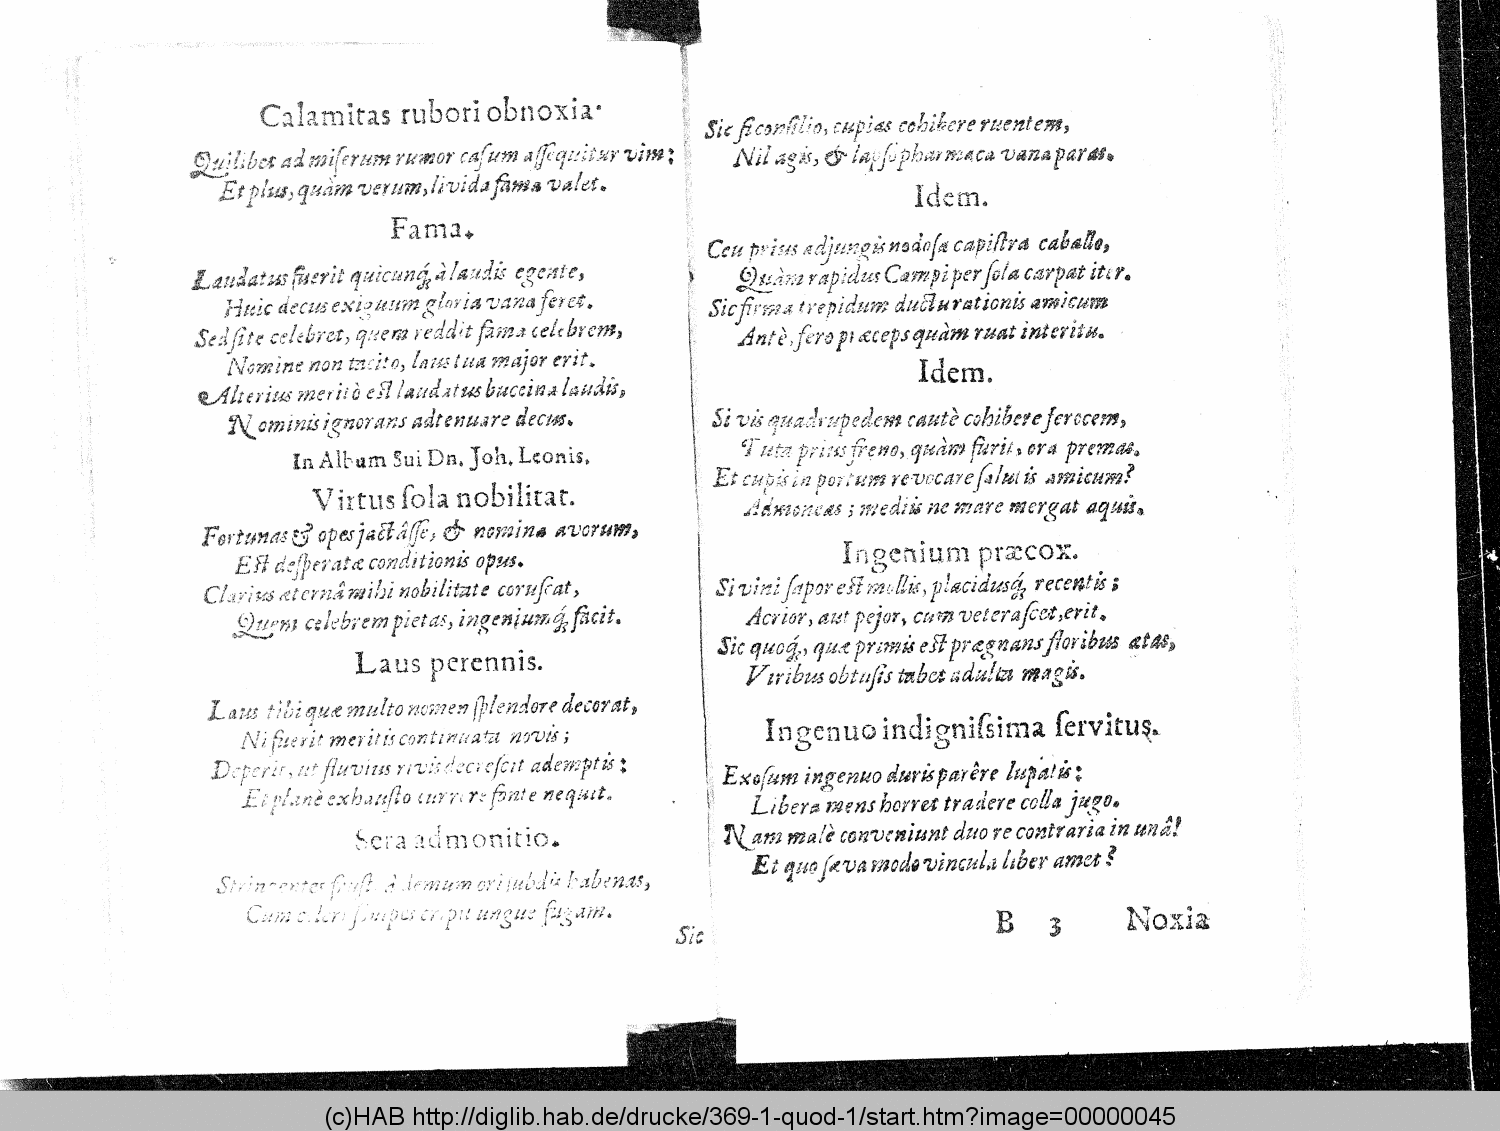 Calamitas rubori obnoxia.
Quilibet ad miſerum rumor caſum aſſequitur vim;
Et plus, quàm verum, livida fama valet.
Fama.
Laudatus fuerit quicunq́; à laudis egente,
Huic decus exiguum gloria vana feret.
Sed ſi te celebret, quem reddit fama celebrem,
Nomine non tacito, laus tua major erit.
Alterius meritò eſt laudatus buccina laudis,
Nominis ignorans adtenuare decus.
In Album Sui Dn. Joh. Leonis.
Virtus ſola nobilitat.
Fortunas & opes jactâſſe, & nomina avorum,
Eſt deſperatæ conditionis opus.
Clarius æternâ mihi nobilitate coruſcat,
Quem celebrem pietas, ingeniumq́; facit.
Laus perennis.
Laus tibi quæ multo nomen ſplendore decorat,
Ni fuerit meritis continuata novis;
Deperit, ut fluvius rivis decreſcit ademptis;
Et planè exhauſto currere fonte nequit.
Sera admonitio.
demum ori ſubdis habenas,
Cum ungue fugam.
Sic
Sic ſi conſilio, cupias cohibere ruentem,
Nil agis, & lapſo pharmaca vana paras.
Idem.
Ceu prius adjungis nodoſa capiſtra caballo,
Quàm rapidus Campi per ſola carpat iter.
Sic firma trepidum ductu rationis amicum
Antè, fero præceps quàm ruat interitu.
Idem.
Si vis quadrupedem cautè cohibere ferocem,
Tuta prius freno, quàm furit, ora premas.
Et cupis in portum revocare ſalutis amicum?
Admoneas; mediis ne mare mergat aquis.
Ingenium præcox.
Si vini ſapor eſt mollis, placidusq́; recentis;
Acrior, aut pejor, cum veteraſcet, erit.
Sic quoq́;, quæ primis eſt prægnans floribus ætas,
Viribus obtuſis tabet adulta magis.
Ingenuo indigniſsima ſervitus.
Exoſum ingenuo duris parêre lupatis;
Libera mens horret tradere colla jugo.
Nam malè conveniunt duo re contraria in unâ!
Et quo ſæva modo vincula liber amet?
B 3 Noxia
(c)HAB http://diglib.hab.de/drucke/369-1-quod-1/start.htm?image=00000045